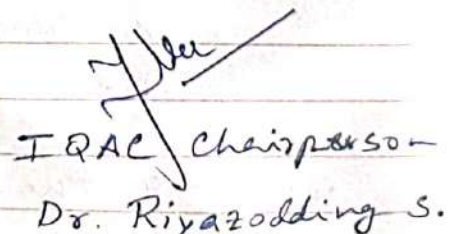 IQAC Chairperson
Dr. Riyazodding S.